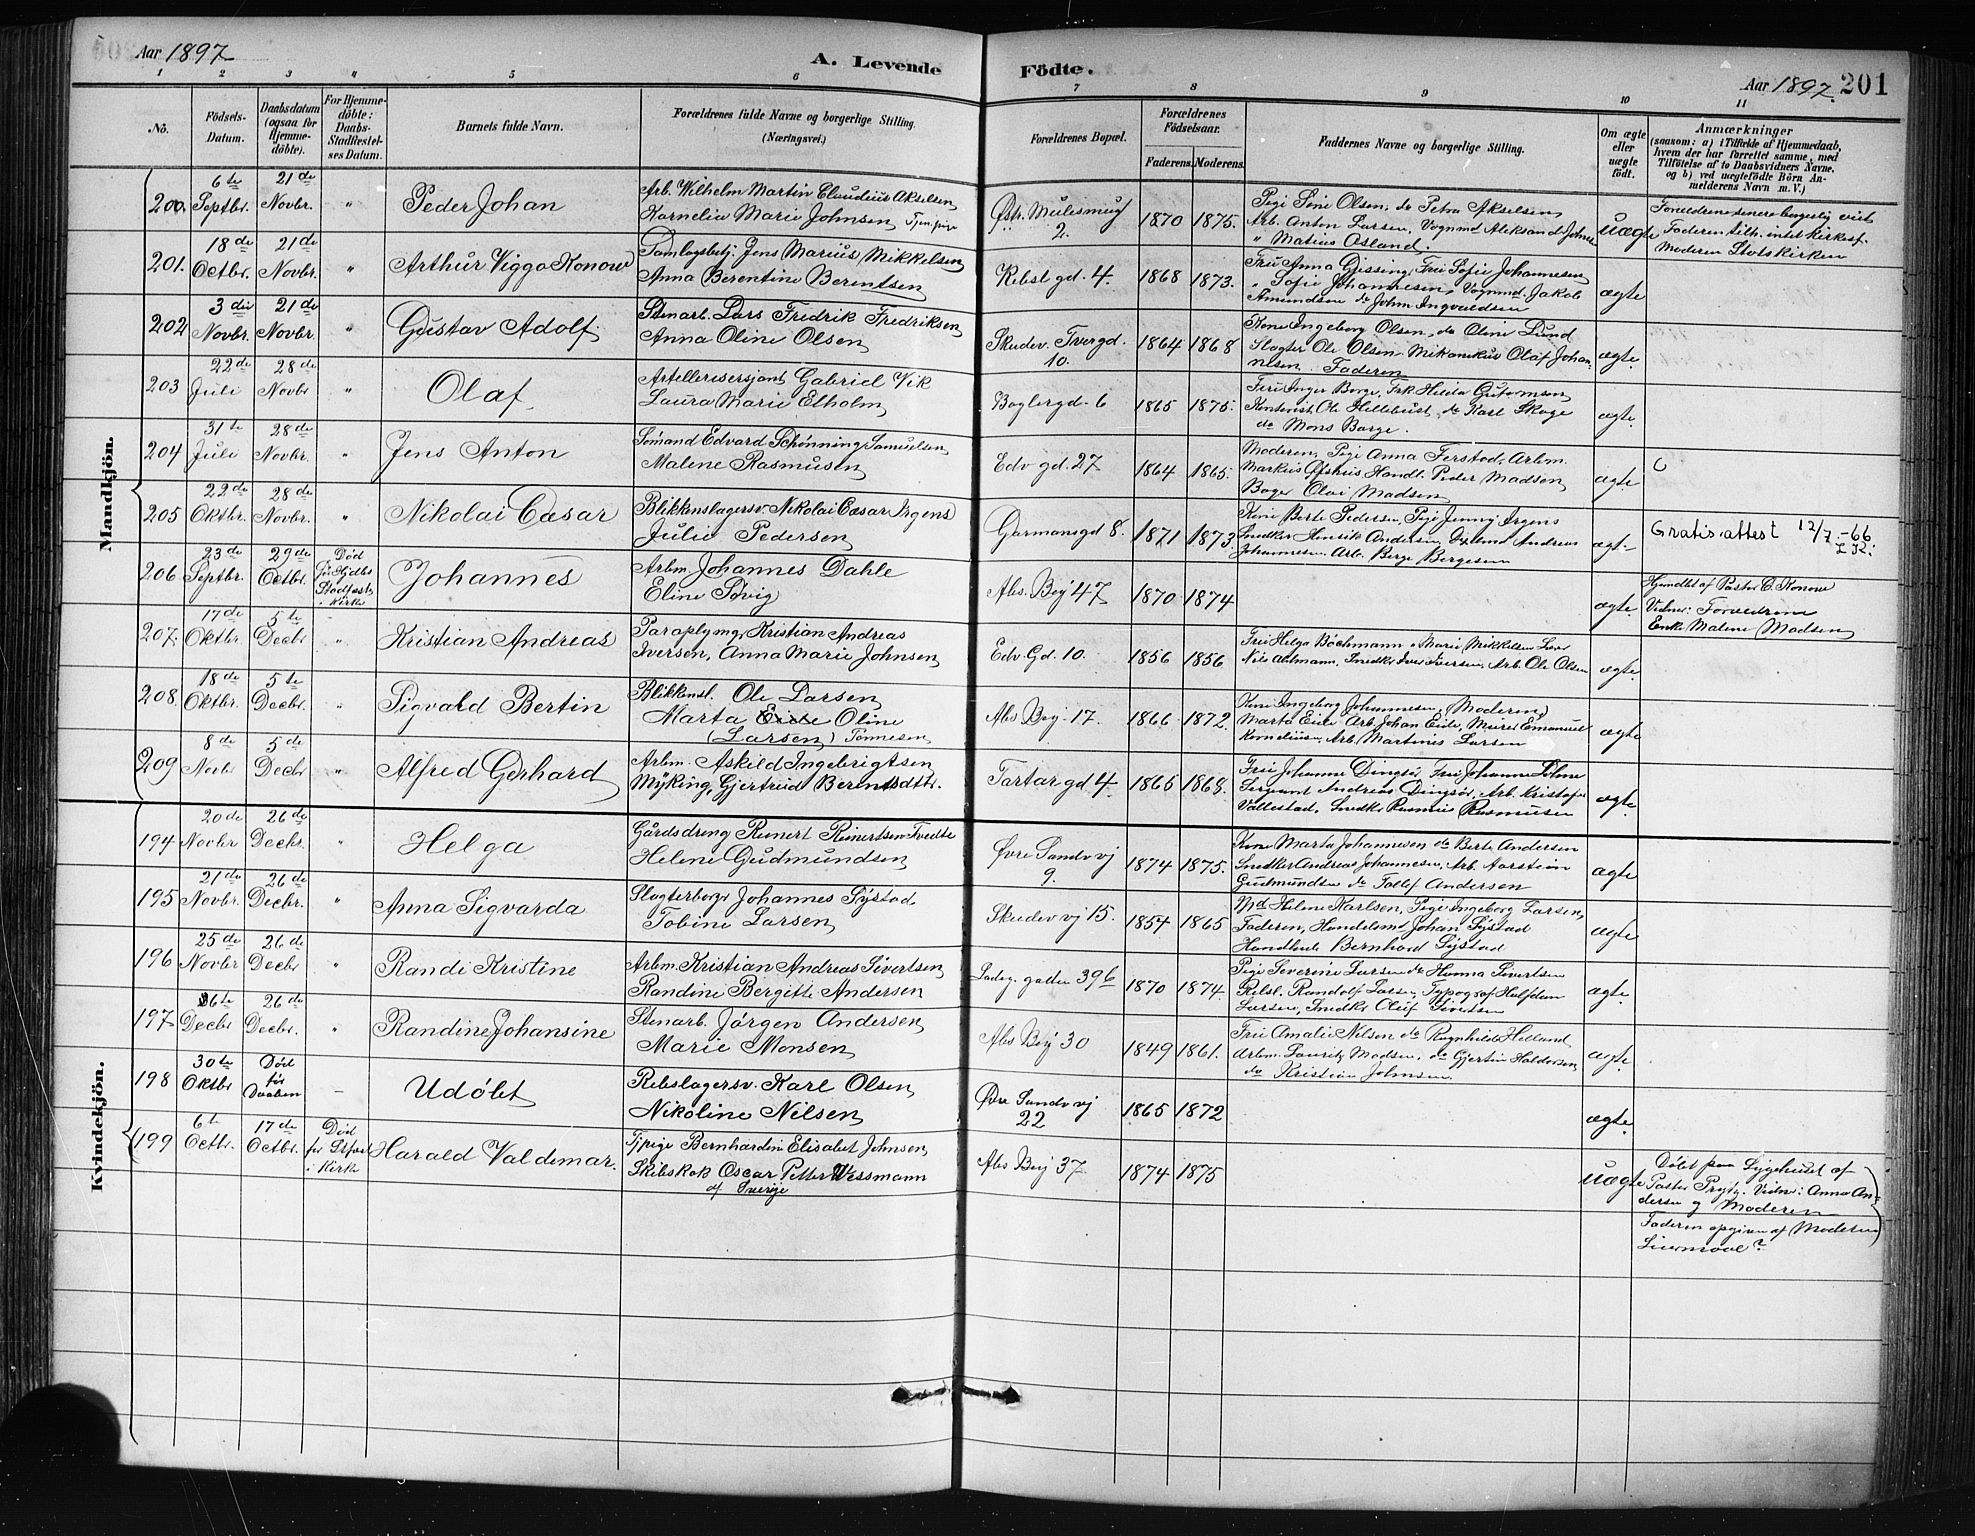 Aar 1897
A. Levende Födte.
Aar 1897. 201
1 2 3 " 5 6 7 8 9 10 11
No.
Födsels-Datum.
Daabsdatum (ogsaa for Hjemme-döbte).
For Hjemme-döbte: Daabs-Stadfæstel-ses Datum.
Barnets fulde Navn.
Forældrenes fulde Navne og borgerlige Stilling.
(Næringsvei.)
Forældrenes Bopæl.
Forældrenes Födselsaar.
Faderens. Moderens.
Faddernes Navne og borgerlige Stilling.
Om ægte eller uægte födt.
Anmærkninger
(saasom: a) i Tilfælde af Hjemmedaab,
hvem der har forrettet samme, med
Tilföielse af to Daabsvidners Navne.
og b) ved uægtefödte Börn An-
melderens Navn m. V.)
Mandkjön.
200. 6te Septbr. 21de Novbr. " Peder Johan
Arb. Wilhelm Martin Claudius Akselsen
Kornelia Marie Johnsen Tjen.pige
2. 1870 1875.
Pige Sine Olsen, do Petra Akselsen
Arb. Anton Larsen, Vognmd Aleksand. Johns
" Matias Osland.
uægte
Forældrene senere borgerlig viet
Faderen tilh. intet kirkesf.
Moderen Statskirken
201. 18de Octbr. 21de Novbr. " Arthur Viggo Konow
Jens Marius Mikkelsen
Anna Berentine Berentsen
Rebsl gd. 4. 1868 1873.
Fru Anna Gjessing, Fru Sofie Johannesen
" Sofie Johannesen, Vognmd. Jakob
Amundsen do John Ingvaldsen
ægte
202 3die Novbr. 21de Novbr. " Gustav Adolf
Stenarb. Lars Fredrik Fredriksen
Anna Oline Olsen
Skudev. Tvergd. 10. 1864 1868
Kone Ingeborg Olsen, do Oline Lund
Slagter Ole Olsen, Mikanikus Olaf Johan-
nesen. Faderen
ægte.
203 22de Juli 28de Novbr " Olaf
Artellerisersjant Gabriel Vik
Laura Marie Elholm
Bagler gd. 6 1865 1875.
Fru Inger Borge, Frk Hilda Gutormsen
Kontorist Ole Hellebust, do Karl Skage
do Mons Borge.
ægte.
204 31te Juli 28de Novbr. " Jens Anton
Sömand Edvard Schønning Samuelsen
Malene Rasmusen
Edv gd. 27 1864 1865.
Moderen, Pige Anna Ferstad, Arbm.
Markus Ofshus Handl. Peder Madsen
Bager Olai Madsen
ægte.
205 22de Oktbr. 28de Novbr. " Nikolai Cæsar
Blikkenslagersv. Nikolai Cæsar Irgens
Julie Pedersen
Garmansgd 8. 1871 1873
Kone Berte Pedersen, Pige Jenny Irgens
Snedker Henrik Andersen, Andreas
Johannesen, Arb. Berge Bergesen
ægte
Gratisattest 12/7 -66
206 23de Septbr. 29de Octbr. Død Stadfæst i Kirke Johannes
Arbm. Johannes Dahle
Eline Søvig
Als. Bej 47 1870 1874
ægte.
Hjemdøbt af Pastor C. Konow
Vidner: Forældrene
Enke Malene Madsen
207. 17de Oktbr. 5te Decbr. " Kristian Andreas
Paraplymgr Kristian Andreas
Iversen, Anna Marie Johnsen
Edv. Gd. 10. 1856 1856
Fru Helga Böckmann " Marie Mikkelsen
Nils Aalmann, Snedkr Iver Iversen, Arb. Ole Olsen
ægte.
208. 18de Oktbr. 5te Decbr. " Sigvald Bertin
Blikkensl. Ole Larsen
Marta Eide Oline
(Larsen) Tönnesen
Als Bej. 17. 1866 1872.
Kone Ingeborg Johannesen, (Moderen)
Marta Eide Arb. Johan Eide, Murer Emanuel
Korneliusen, Arb. Martinus Larsen
ægte.
209 8de Novbr 5de Decbr " Alfred Gerhard
Arbm. Askild Ingebrigtsen
Myking, Gjertrud Berentsdtr.
Tartargd 4 1865 1868.
Fru Johanne Dingsör, Fru Johanne
Sergeant Andreas Dingsör, Arb. Kristofer
Vallestad, Snedkr Rasmus Rasmusen
ægte.
Kvindekjön.
194 20de Novbr 26de Decbr. " Helga
Gårdsdreng Reinert Reinertsen Tvedte
Helene Gudmundsen
Övre Sandv vj 9. 1874 1875.
Kone Marta Johannesen do Berte Andersen
Snedker Andreas Johannesen, Arb. Torstein
Gudmundsen do Tollef Andersen
ægte
195 21de Novbr. 26de Decbr. " Anna Sigvarda
Slagterborgr Johannes Systad
Tobine Larsen
Skudev vj 15. 1854 1865
Md. Helene Karlsen, Pige Ingeborg Larsen,
Faderen, Handelsmd Johan Systad
Bernhard Systad
ægte
196 25de Novbr 26de Decbr. " Randi Kristine
Arbm. Kristian Andreas Sivertsen
Randine Bergitte Andersen
Ladeg. gaden 39b 1870 1874.
Pige Severine Larsen do Hanna Sivertsen
Rebsl. Randolf Larsen, Typograf Halfdan
Larsen, Snedkr Oluf Sivertsen
ægte.
197 6te Decbr 26de Decbr. " Randine Johansine
Stenarb. Jörgen Andersen
Marie Monsen
Als Bej 30 1849 1861.
Fru Amalie Nilsen do Ragnhild Helland
Arbm. Lauritz Madsen, do Gjertin Haldorsen
do Kristian Johnsen
ægte.
198 30te Oktbr Död för Daaben – Udöbt
Rebslagersv. Karl Olsen
Nikoline Nilsen
Övre Sandv vj 22 1865 1872
ægte.
199 6te Octbr. 17de Octbr. Död før i Kirke Harald Valdemar.
Tjpige Bernhardine Elisabet Johnsen
Skibskok Oscar Petter Wessmann
af Sverige
Als Bej 37 1874 1875
uægte
Döbt paa Sygehuset af
Pastor Prytz. Vidne: Anna An-
dersen og Moderen
Faderen opgiven af Moderen